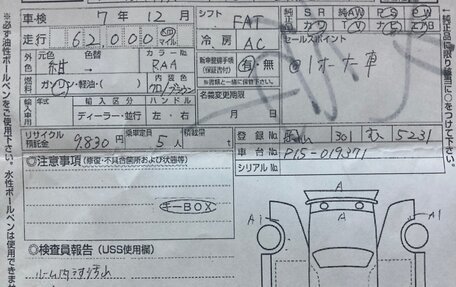 車検 7年 12月
シフト FAT
純正 SR ナビ AW TV PS 革 PW エアB
走行 62,000 km マイル
冷房 AC
セールスポイント
元色 紺 → 色替 カラーNo. RAA
新車整備手帳(保証書付) 有・無
①オーナー車
燃料 ガソリン・軽油・( ) 内装色 クロ/ブラウン
※書類と一緒に保管して下さい。
輸入車用 輸入区分 ディーラー・並行 ハンドル 左・右
名義変更期限 月 日
リサイクル預託金 9,830円 乗車定員 5人 積載量 t
登録No. 301 す 5231
◎注意事項(修復・不具合箇所および状態等)
車台No. P15-019371
シリアルNo.
キーBOX
A
A1 A A1
◎検査員報告(USS使用欄)
ルーム内うす汚れ
※必ず油性ボールペンをご使用下さい。水性ボールペンは使用できま